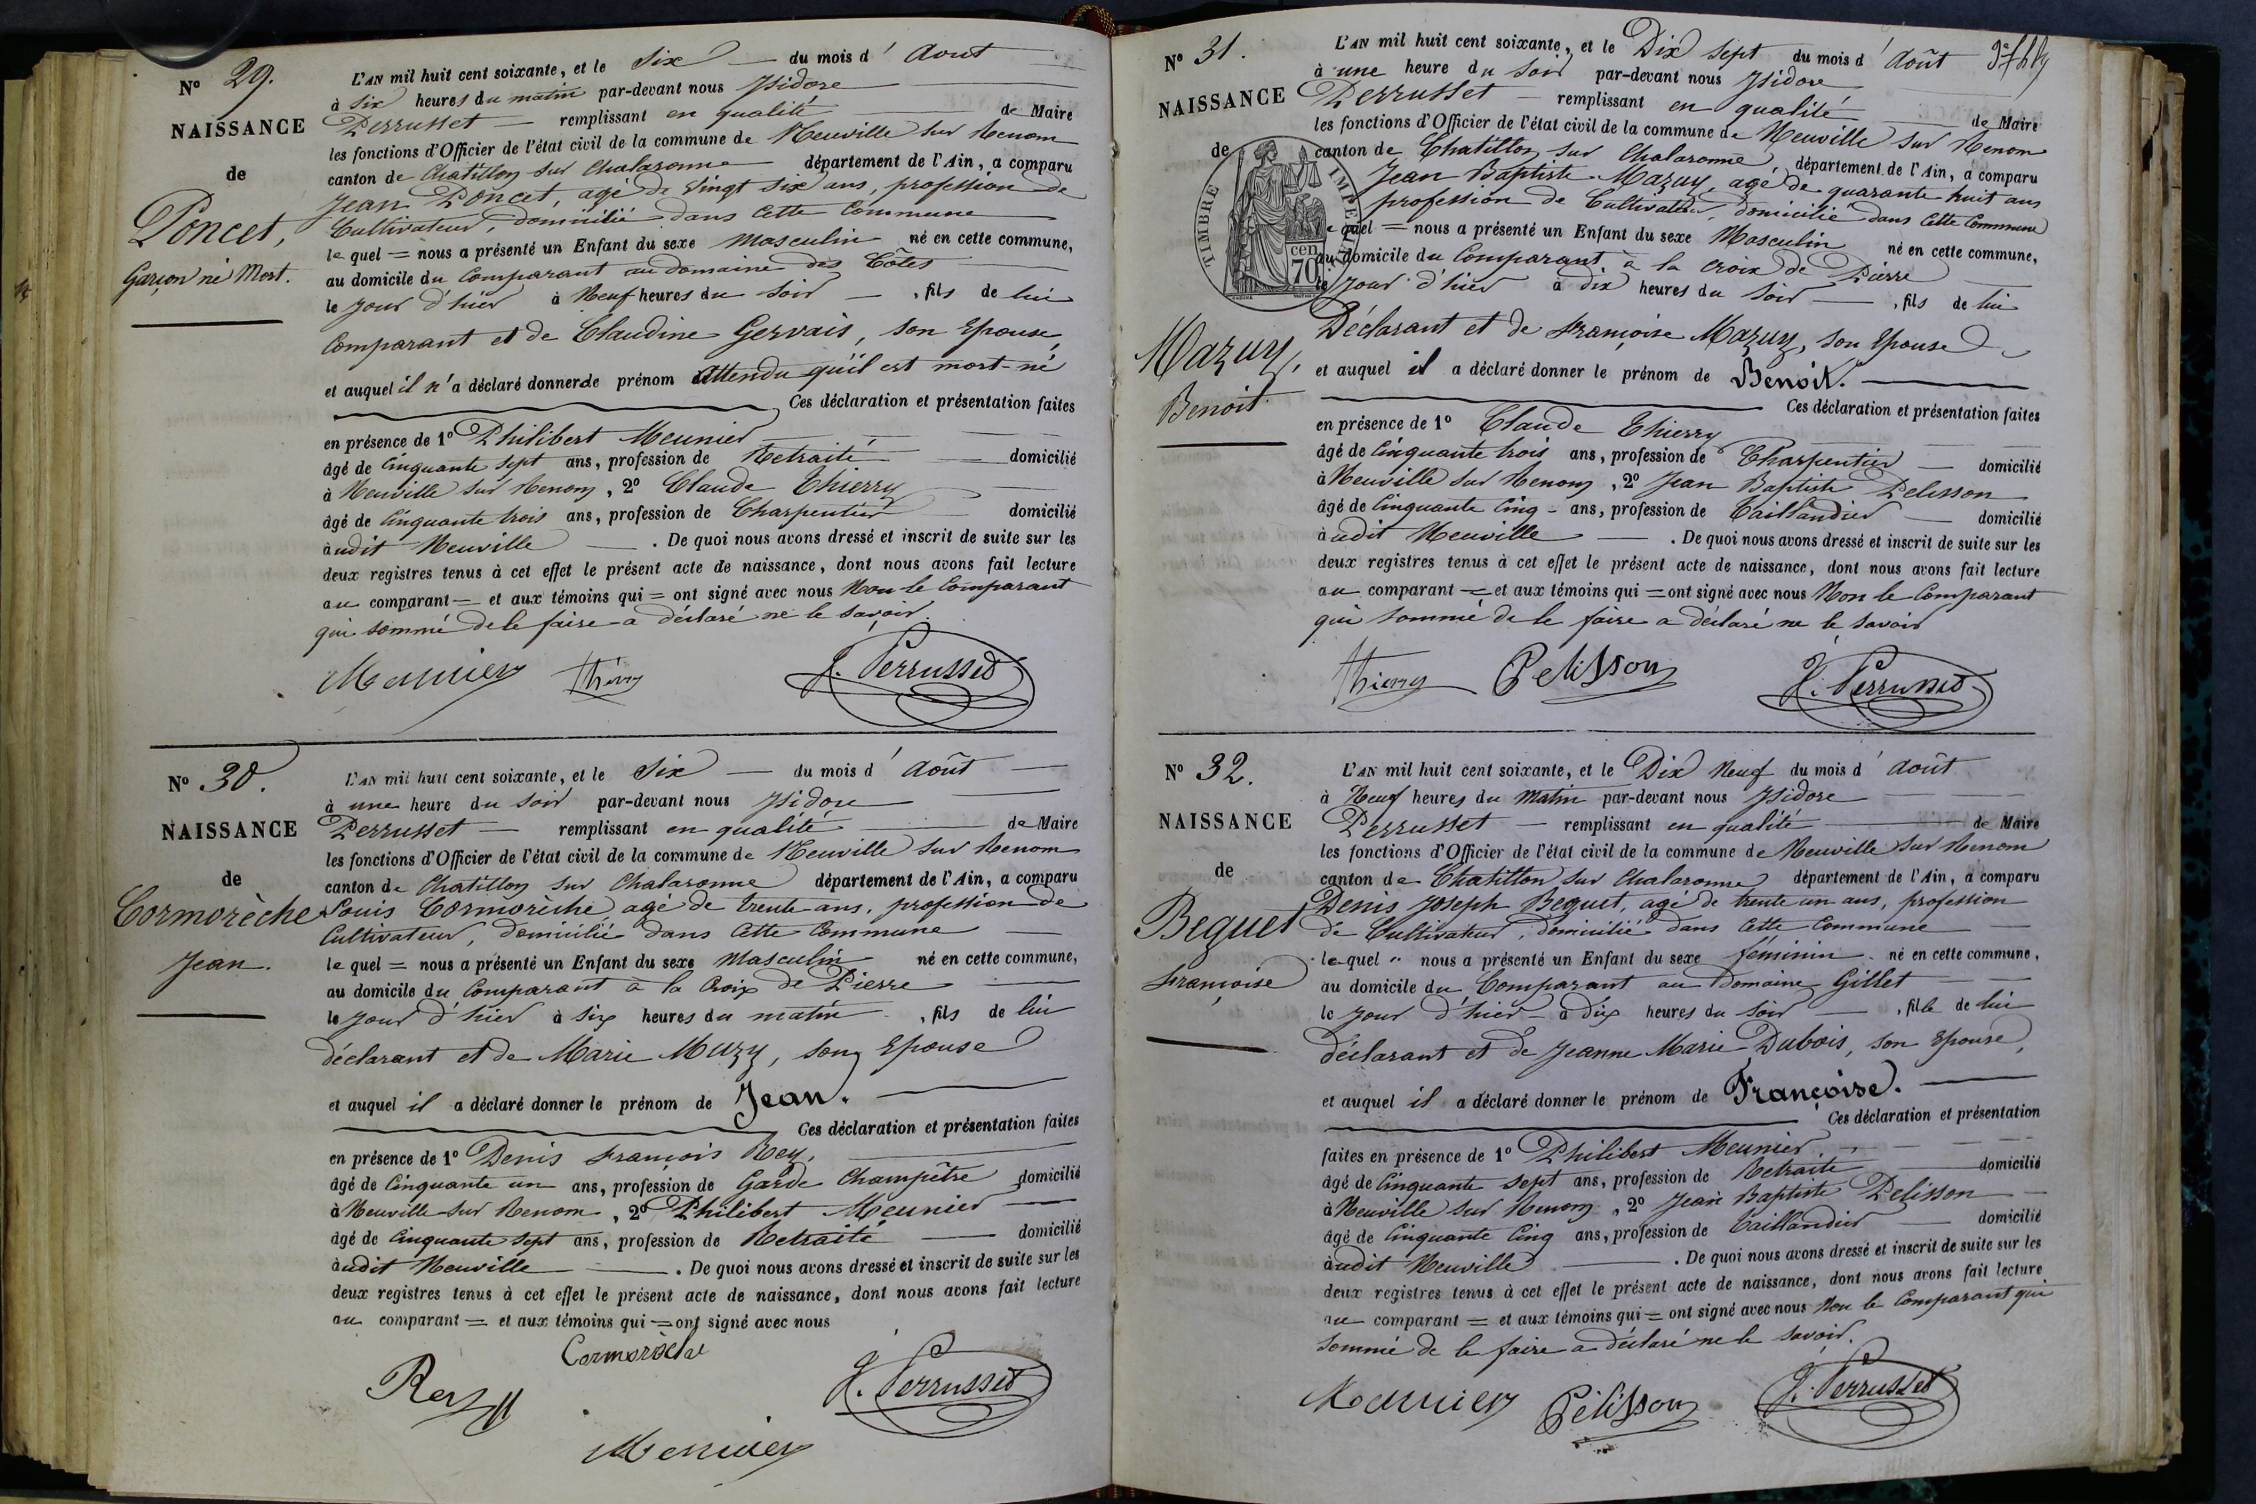 N° 29.
NAISSANCE
de
Poncet,
Garçon né Mort.
L'AN mil huit cent soixante, et le Six du mois d'Aout
à Six heures du matin par-devant nous Isidore
Perrusset remplissant en qualité de Maire
les fonctions d'Officier de l'état civil de la commune de Neuville sur Renom
canton de Chatillon sur Chalaronne département de l'Ain, a comparu
Jean Poncet, agé de vingt six ans, profession de
Cultivateur, domicilié dans cette Commune
le quel = nous a présenté un Enfant du sexe Masculin né en cette commune,
au domicile du Comparant au domaine des Côtes
le jour d'hier à Neuf heures du Soir, fils de lui
Comparant et de Claudine Gervais, son Epouse,
et auquel il n'a déclaré donner de prénom attendu qu'il est mort-né
Ces déclaration et présentation faites
en présence de 1° Philibert Meunier
âgé de Cinquante sept ans, profession de Retraité domicilié
à Neuville sur Renom, 2° Claude Thierry
âgé de Cinquante trois ans, profession de Charpentier domicilié
audit Neuville. De quoi nous avons dressé et inscrit de suite sur les
deux registres tenus à cet effet le présent acte de naissance, dont nous avons fait lecture
au comparant = et aux témoins qui = ont signé avec nous Non le Comparant
qui sommé de le faire a déclaré ne le savoir.
Meunier Thierry J. Perrusset
N° 30.
NAISSANCE
de
Cormorèche
Jean.
L'AN mil huit cent soixante, et le Six du mois d'Août
à une heure du Soir par-devant nous Isidore
Perrusset remplissant en qualité de Maire
les fonctions d'Officier de l'état civil de la commune de Neuville sur Renom
canton de Chatillon sur Chalaronne département de l'Ain, a comparu
Louis Cormorèche, agé de trente ans, profession de
Cultivateur, domicilié dans cette Commune
le quel = nous a présenté un Enfant du sexe Masculin né en cette commune,
au domicile du Comparant à la Croix de Pierre
le jour d'hier à Six heures du matin, fils de lui
déclarant et de Marie Muzy, son Epouse
et auquel il a déclaré donner le prénom de Jean.
Ces déclaration et présentation faites
en présence de 1° Denis François Rey,
âgé de Cinquante un ans, profession de Garde Champêtre domicilié
à Neuville sur Renom, 2° Philibert Meunier
âgé de Cinquante sept ans, profession de Retraité domicilié
audit Neuville. De quoi nous avons dressé et inscrit de suite sur les
deux registres tenus à cet effet le présent acte de naissance, dont nous avons fait lecture
au comparant = et aux témoins qui = ont signé avec nous
Cormorèche
Rey J. Perrusset
Meunier
N° 31.
NAISSANCE
de
TIMBRE IMPERIAL
70 cen
Mazuy,
Benoit.
L'AN mil huit cent soixante, et le Dix Sept du mois d'Août
à une heure du Soir par-devant nous Isidore
Perrusset remplissant en qualité de Maire
les fonctions d'Officier de l'état civil de la commune de Neuville sur Renom
canton de Chatillon sur Chalaronne, département de l'Ain, a comparu
Jean Baptiste Mazuy, agé de quarante huit ans
profession de Cultivateur, domicilié dans cette Commune
le quel = nous a présenté un Enfant du sexe Masculin né en cette commune,
au domicile du Comparant à la Croix de Pierre
le jour d'hier à dix heures du Soir, fils de lui
Déclarant et de Françoise Mazuy, son Epouse
et auquel il a déclaré donner le prénom de Benoit.
Ces déclaration et présentation faites
en présence de 1° Claude Thierry
âgé de Cinquante trois ans, profession de Charpentier domicilié
à Neuville sur Renom, 2° Jean Baptiste Pelisson
âgé de Cinquante Cinq ans, profession de Taillandier domicilié
audit Neuville. De quoi nous avons dressé et inscrit de suite sur les
deux registres tenus à cet effet le présent acte de naissance, dont nous avons fait lecture
au comparant = et aux témoins qui = ont signé avec nous Non le Comparant
qui sommé de le faire a déclaré ne le savoir
Thierry Pelisson J. Perrusset
N° 32.
NAISSANCE
de
Beguet
Françoise
L'AN mil huit cent soixante, et le Dix Neuf du mois d'Août
à Neuf heures du Matin par-devant nous Isidore
Perrusset remplissant en qualité de Maire
les fonctions d'Officier de l'état civil de la commune de Neuville sur Renom
canton de Chatillon sur Chalaronne département de l'Ain, a comparu
Denis Joseph Beguet, agé de trente un ans, profession
de Cultivateur, domicilié dans cette Commune
le quel " nous a présenté un Enfant du sexe féminin né en cette commune,
au domicile du Comparant au Domaine Gillet
le jour d'hier à dix heures du Soir, fille de lui
déclarant et de Jeanne Marie Dubois, son Epouse,
et auquel il a déclaré donner le prénom de Françoise.
Ces déclaration et présentation
faites en présence de 1° Philibert Meunier
âgé de Cinquante sept ans, profession de Retraité domicilié
à Neuville sur Renom, 2° Jean Baptiste Pelisson
âgé de Cinquante Cinq ans, profession de Taillandier domicilié
audit Neuville. De quoi nous avons dressé et inscrit de suite sur les
deux registres tenus à cet effet le présent acte de naissance, dont nous avons fait lecture
au comparant = et aux témoins qui = ont signé avec nous Non le Comparant qui
sommé de le faire a déclaré ne le savoir.
Meunier Pélisson J. Perrusset